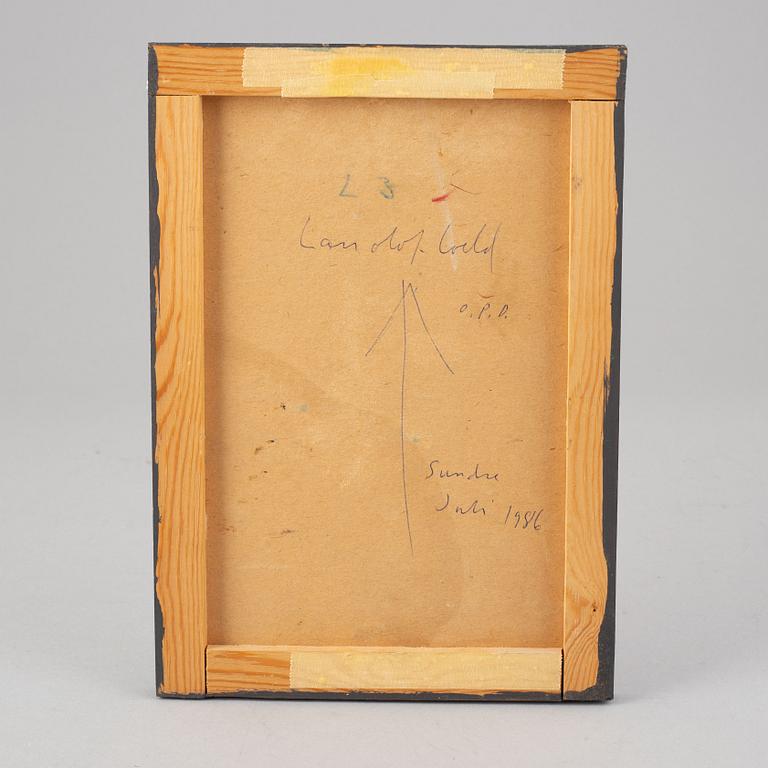 L 3
Lars Olof Loeld
O.P.D.
Sundre
Juli 1986